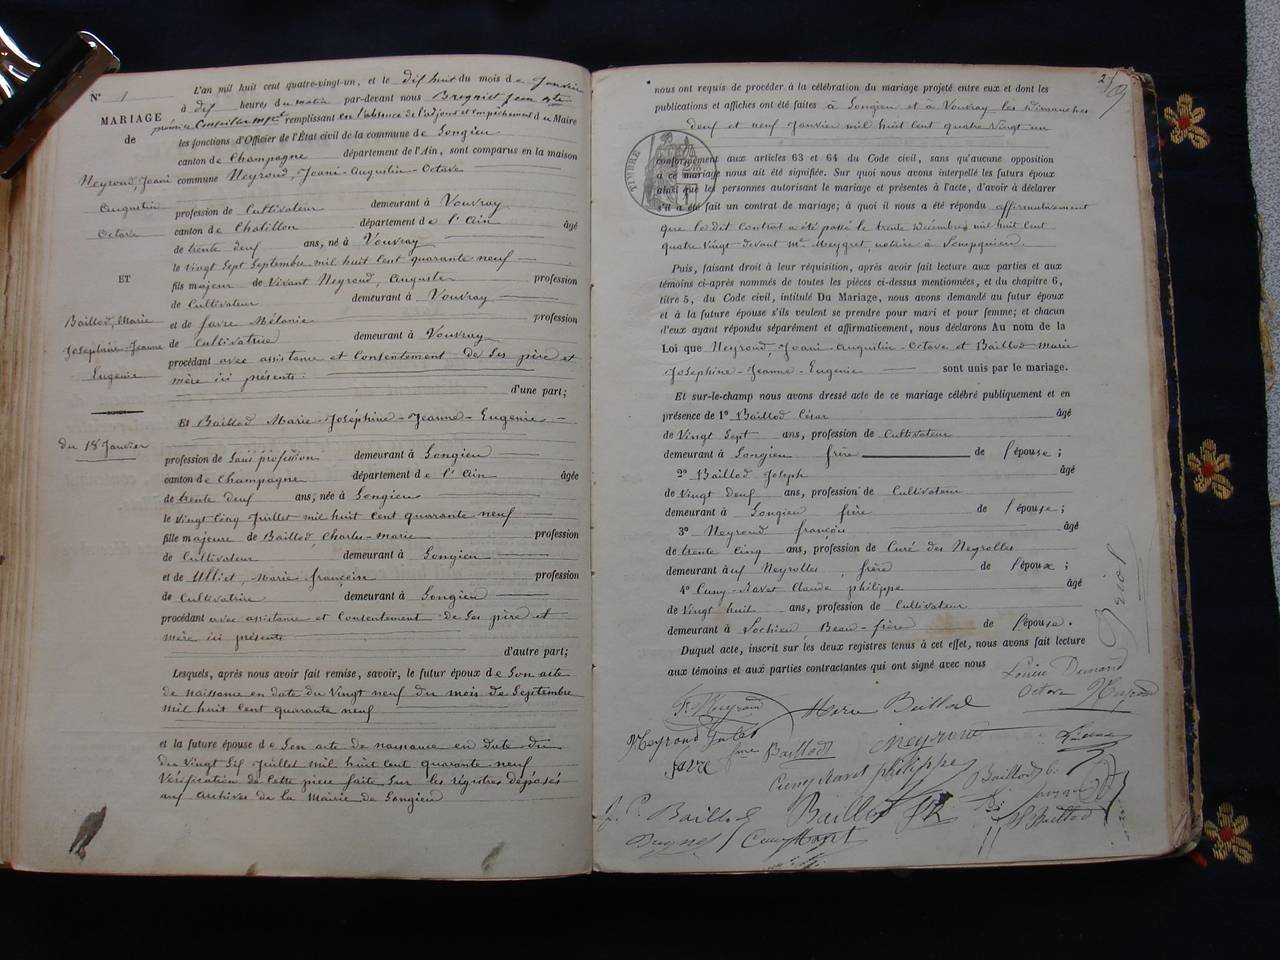 N° 1
MARIAGE
de
Neyroud, Joani
Augustin
Octave
ET
Baillod, Marie
Joséphine-Jeanne
Eugénie
du 18 Janvier
L'an mil huit cent quatre-vingt-un, et le dix huit du mois de Janvier
à dix heures du matin par-devant nous
premier Conseiller mpal remplissant en l'absence de l'adjoint et empêchement du Maire
les fonctions d'Officier de l'État civil de la commune de Songieu
canton de Champagne département de l'Ain, sont comparus en la maison
commune Neyroud, Joani-Augustin-Octave
profession de Cultivateur demeurant à Vouvray
canton de Chatillon département de l'Ain âgé
de trente deux ans, né à Vouvray
le vingt sept Septembre mil huit cent quarante neuf
fils majeur de Vivant Neyroud, Auguste profession
de Cultivateur demeurant à Vouvray
et de Favre Mélanie profession
de Cultivatrice demeurant à Vouvray
procédant avec assistance et Consentement de Ses père et
mère ici présents.
d'une part;
Et Baillod Marie-Joséphine-Jeanne-Eugenie
profession de Sans profession demeurant à Songieu
canton de Champagne département de l'Ain âgée
de trente deux ans, née à Songieu
le vingt cinq Juillet mil huit cent quarante neuf
fille majeure de Baillod, Charles-Marie profession
de Cultivateur demeurant à Songieu
et de Ulliet, Marie françoise profession
de Cultivatrice demeurant à Songieu
procédant avec assistance et Consentement de Ses père et
mère ici présents
d'autre part;
Lesquels, après nous avoir fait remise, savoir, le futur époux de Son acte
de naissance en date du Vingt neuf du mois de Septembre
mil huit cent quarante neuf
et la future épouse de Son acte de naissance en Date du
du Vingt Six Juillet mil huit cent quarante neuf
Vérification de Cette pièce faite sur les régistres déposés
aux Archives de la Mairie de Songieu
nous ont requis de procéder à la célébration du mariage projeté entre eux et dont les
publications et affiches ont été faites à Songieu et à Vouvray les Dimanches
deux et neuf Janvier mil huit cent quatre Vingt un
TIMBRE
conformément aux articles 63 et 64 du Code civil, sans qu'aucune opposition
à ce mariage nous ait été signifiée. Sur quoi nous avons interpellé les futurs époux
ainsi que les personnes autorisant le mariage et présentes à l'acte, d'avoir à déclarer
s'il a été fait un contrat de mariage; à quoi il nous a été répondu affirmativement
que le dit Contrat a été passé le trente Décembre mil huit cent
quatre Vingt devant Me Meygret, notaire à
Puis, faisant droit à leur réquisition, après avoir fait lecture aux parties et aux
témoins ci-après nommés de toutes les pièces ci-dessus mentionnées, et du chapitre 6,
titre 5, du Code civil, intitulé Du Mariage, nous avons demandé au futur époux
et à la future épouse s'ils veulent se prendre pour mari et pour femme; et chacun
d'eux ayant répondu séparément et affirmativement, nous déclarons Au nom de la
Loi que Neyroud, Joani-Augustin-Octave et Baillod Marie
Joséphine-Jeanne-Eugenie sont unis par le mariage.
Et sur-le-champ nous avons dressé acte de ce mariage célébré publiquement et en
présence de 1° Baillod César âgé
de Vingt Sept ans, profession de Cultivateur
demeurant à Songieu frère de l'épouse;
2° Baillod Joseph âgé
de Vingt Deux ans, profession de Cultivateur
demeurant à Songieu frère de l'épouse;
3° Neyroud françois âgé
de trente Cinq ans, profession de Curé des Neyrolles
demeurant aux Neyrolles frère de l'époux;
4° Cuny-Ravet Claude philippe âgé
de Vingt huit ans, profession de Cultivateur
demeurant à Lochieu Beau-frère de l'épouse.
Duquel acte, inscrit sur les deux registres tenus à cet effet, nous avons fait lecture
aux témoins et aux parties contractantes qui ont signé avec nous
Louise Dumond
Octave Neyroud
F. Neyroud
Marie Baillod
Neyroud
Favre
fme Baillod
Neyroud
Cuny Ravet philippe
Baillod
J. C. Baillod
Baillod
Baillod